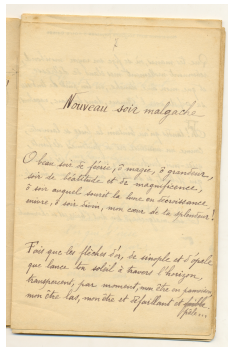 Nouveau soir malgache
O beau soir de féerie, ô magie, ô grandeur,
soir de béatitude et de magnificence,
ô soir auquel sourit la lune en
mûre, ô soir bien, mon cœur de ta splendeur !
Fais que les flèches d'or, de simple et d'opale
que lance ton soleil à travers l'horizon,
transpercent, par moment, mon être en pamoison,
mon être las, mon être et défaillant et pâle...